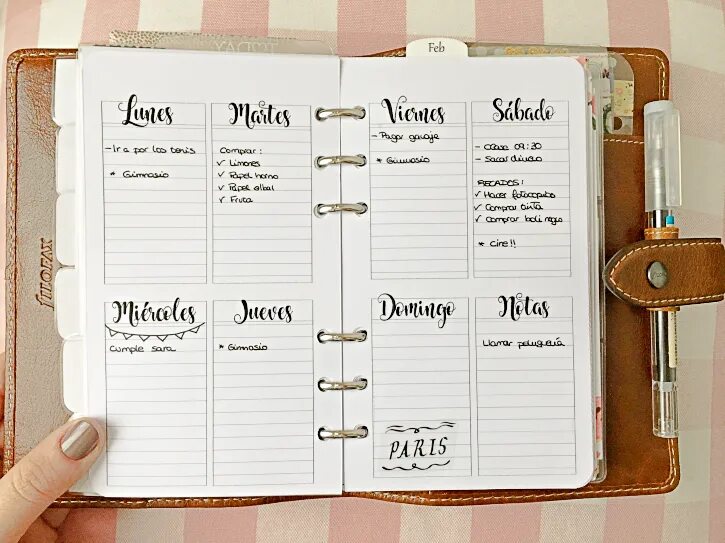 Feb
FILOFAX
Lunes
-Ir a por los tenis
* Gimnasio
Martes
Comprar:
✓ Limones
✓ Papel horno
✓ Papel albal
✓ Fruta
Miércoles
Cumple sara
Jueves
* Gimnasio
Viernes
- Pagar garaje
* Gimnasio
Sábado
- Clase 09:30
- Sacar dinero
RECADOS:
✓ Hacer fotocopias
✓ Comprar tinta
✓ Comprar boli negro
* Cine!!
Domingo
PARIS
Notas
Llamar peluquería